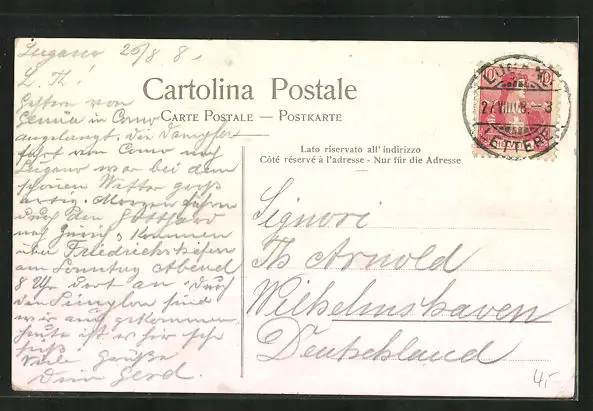 Lugano 26/8 8.
L. Th.!
Gestern von
Genua in Como
angelangt. Die Dampfer-
fahrt von Como nach
Lugano war bei dem
schönen Wetter groß-
artig. Morgen fahren
durch den Gotthard
nach Zürich, kommen
über Friedrichshafen
am Sonntag Abend
8 Uhr dort an. Durch
den Simplon sind
wir auch gekommen.
heute ist es hier sehr
heiß.
Viele Grüße
Dein Gerd.
Cartolina Postale
CARTE POSTALE — POSTKARTE
Lato riservato all' indirizzo
Côté réservé à l'adresse - Nur für die Adresse
10
LUGANO
27.VIII.08.-3
LETTERE
Signori
Th Arnold
Wilhelmshaven
Deutschland
4,-